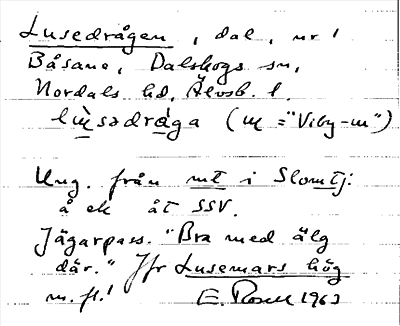 Lusedrågen, dal, nr 1
Båsane, Dalskogs sn,
Nordals hd, Älvsb. l.
(ɯ = "Viby-ɯ")
Ung. från mt i Slomtj:
å ek åt SSV.
Jägarpass. "Bra med älg
där." Jfr Lusemars hög
m. fl.! E. Rosell 1963